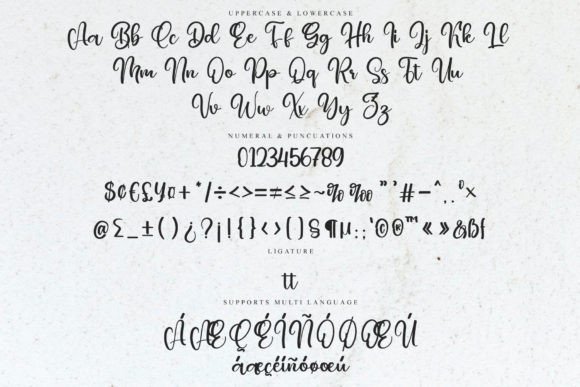 UPPERCASE & LOWERCASE
Aa Bb Cc Dd Ee Ff Gg Hh Ii Jj Kk Ll
Mm Nn Oo Pp Qq Rr Ss Tt Uu
Vv Ww Xx Yy Zz
NUMERAL & PUNCUATIONS
0123456789
$¢€£¥¤+*/÷<>=≠≤≥~%‰"'#-^
@Σ_±()¿?¡!{}‹›[]§¶µ:;'©®™«»&
LIGATURE
tt
SUPPORTS MULTI LANGUAGE
ÁÆÇÉÍÑÓØŒÚ
áæçéíñóøœú